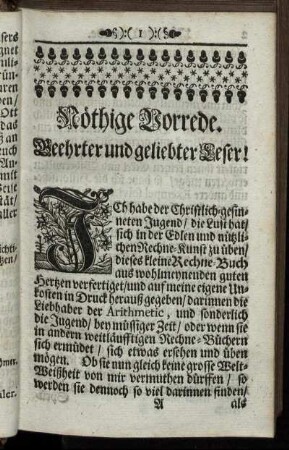 ):( I ):(
Nöthige Vorrede.
Geehrter und geliebter Leser!
ICh habe der Christlich-gesin-
neten Jugend/ die Lust hat/
sich in der Edlen und nützli-
chen Rechne-Kunst zu üben/
dieses kleine Rechne-Buch
aus wohlmeynenden guten
Hertzen verfertiget/ und auf meine eigene Un-
kosten in Druck heraus gegeben/ darinnen die
Liebhaber der Arithmetic, und sonderlich
die Jugend/ bey müssiger Zeit/ oder wenn sie
in andern weitläufftigen Rechne-Büchern
sich ermüdet/ sich etwas ersehen und üben
mögen. Ob sie nun gleich keine grosse Welt-
Weißheit von mir vermuthen dürffen/ so
werden sie dennoch so viel darinnen finden/
A als